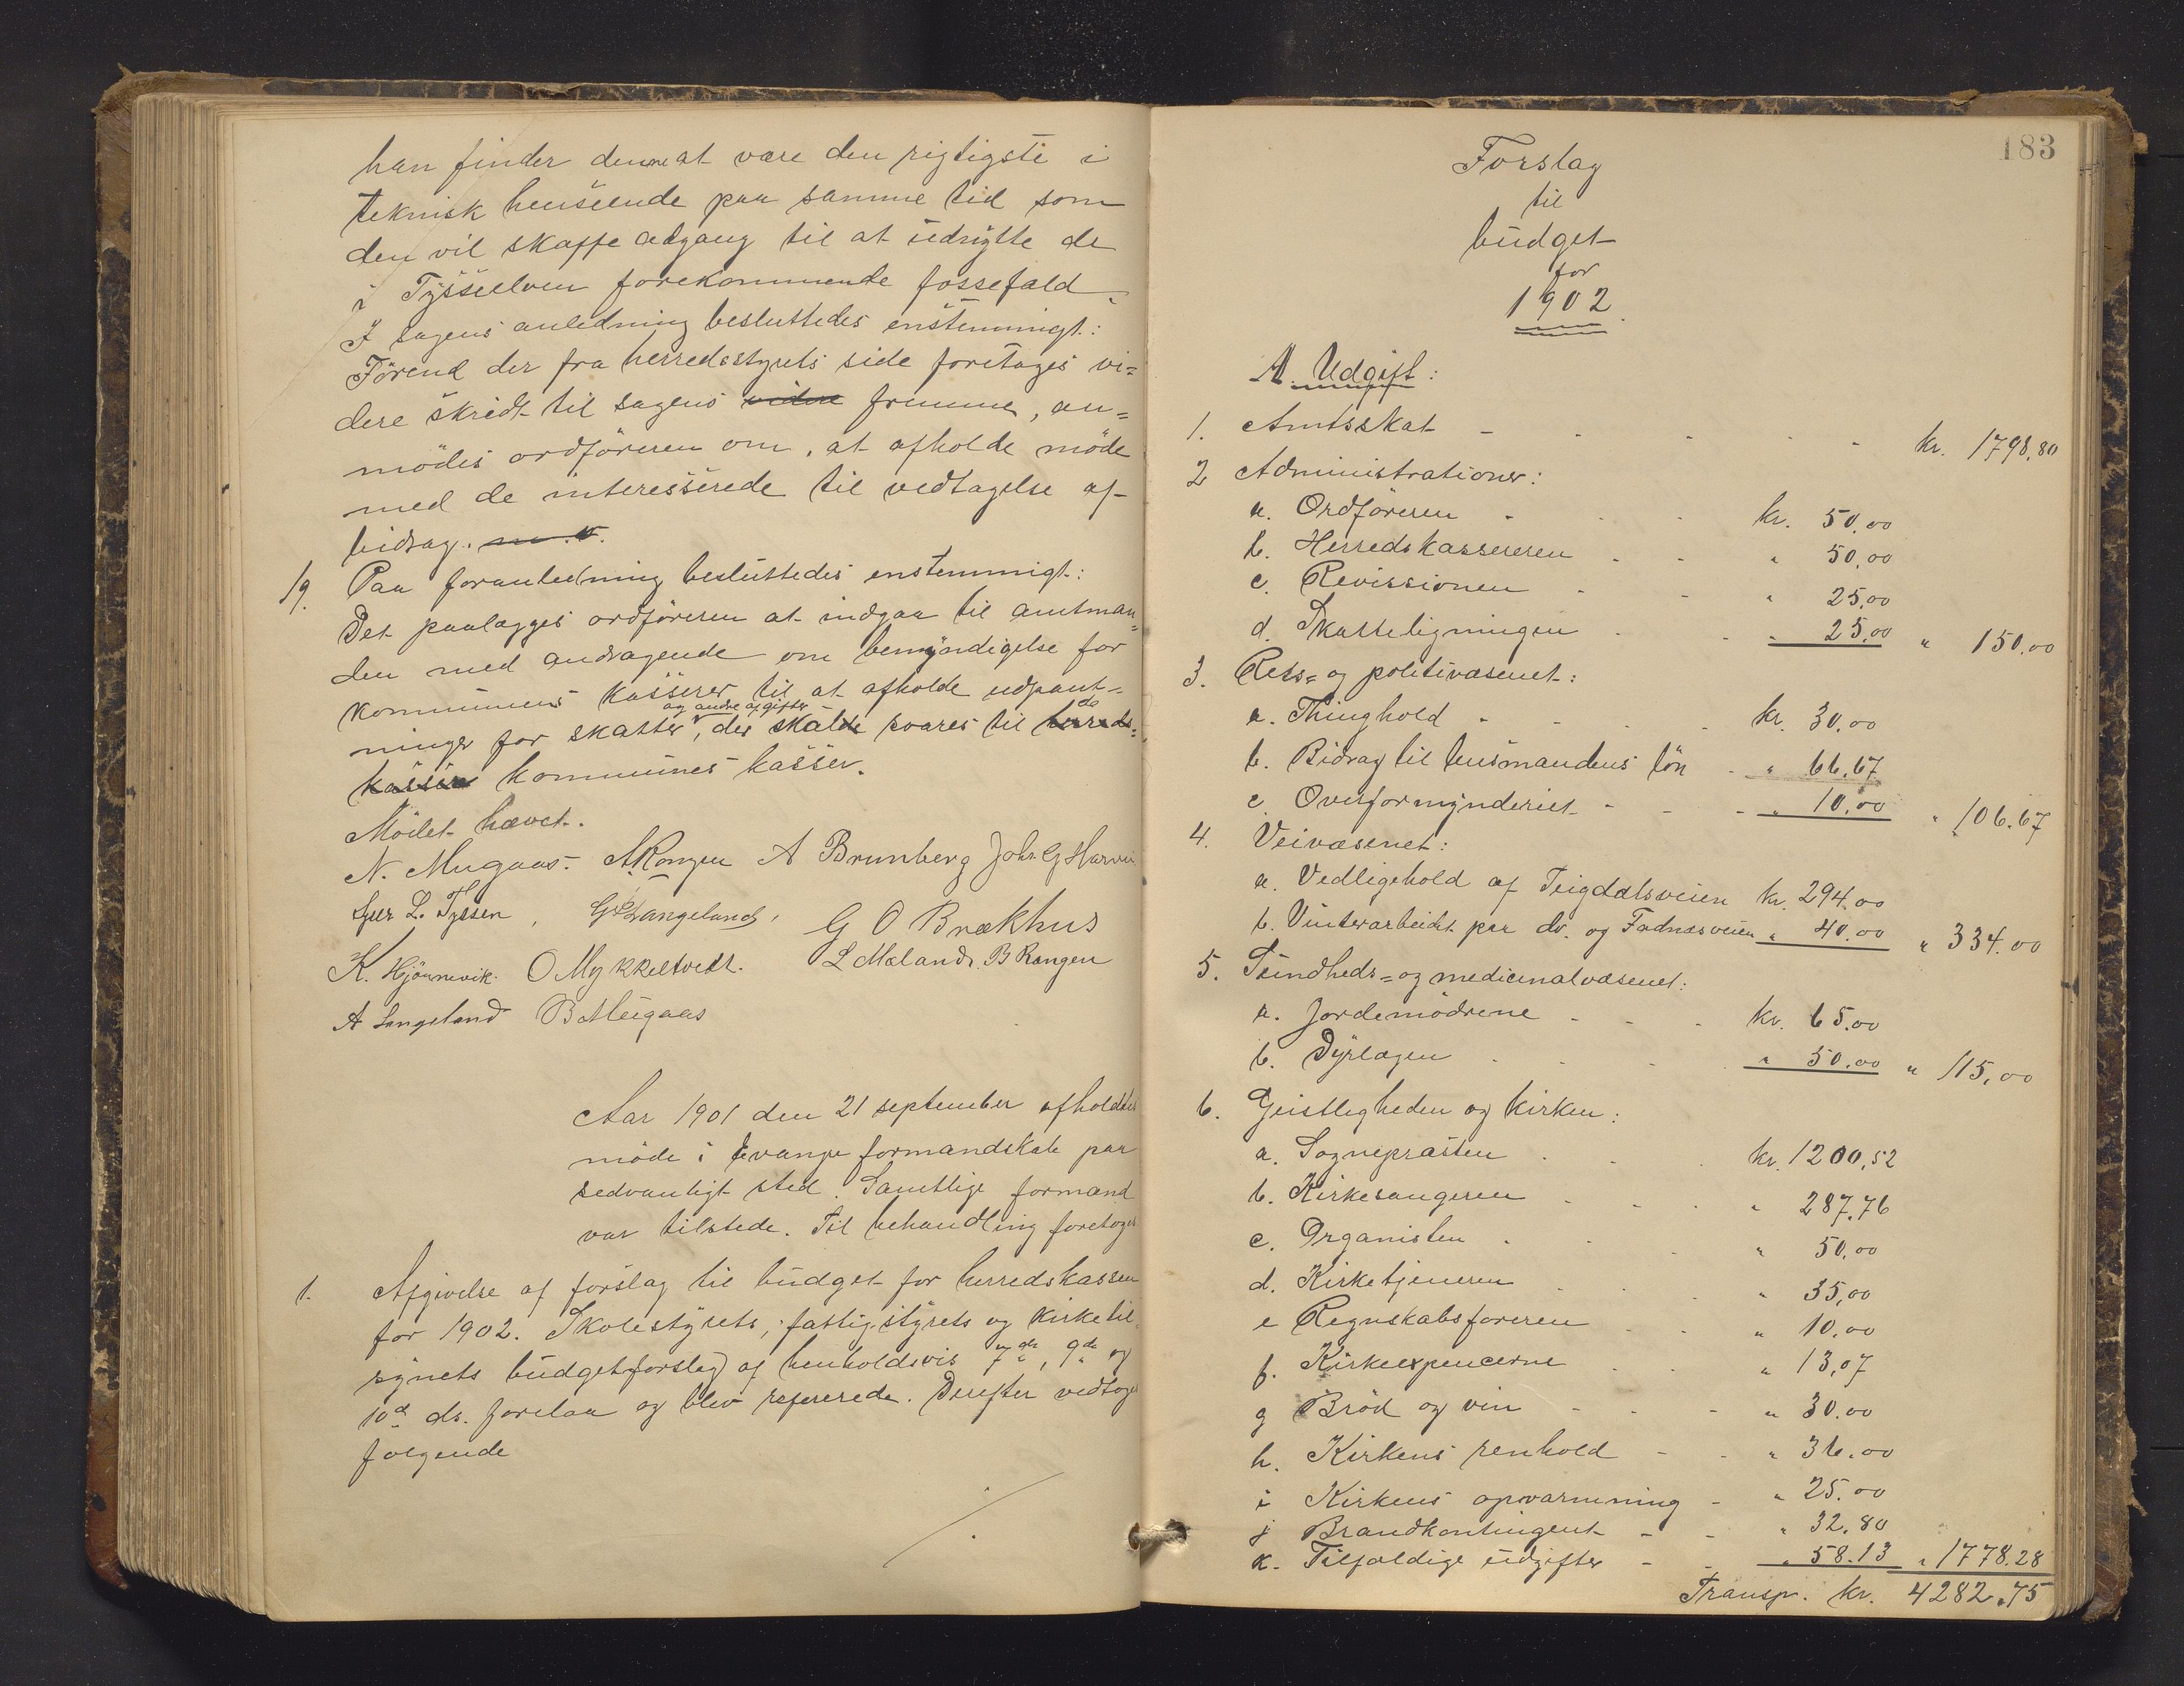 han finder denne at være den rigtigste i
teknisk henseende paa samme tid som
den vil skaffe adgang til at udnytte de
i Tysseelven forekommende fossefald.
I sagens anledning besluttedes enstemmigt:
Förend der fra herredsstyrets side foretages vi=
dere skridt til sagens videre fremme, an=
modes ordföreren om, at afholde möde
med de interesserede til vedtagelse af
bidrag. m.v.
19. Paa foranledning besluttedes enstemmigt:
Det paalægges ordföreren at indgaa til amtman=
den med andragende om bemyndigelse for
kommunens kasserer til at afholde udpant=
og andre afgifter de
ninger for skatter, der skalde svares til herreds=
kassen kommunes kasser.
Mödet hævet.
N. Mugaas. A Rongen A Brunberg Joh. G Harvei
Sjur L. Tyssen, G L Langeland, G O Brækhus
K. Hjönnevik. O Mykkeltvedt. L Mæland. B Rongen
A Langeland B Mugaas
Aar 1901 den 21 september afholdtes
möde i Evanger formandskab paa
sedvanligt sted. Samtlige formænd
var tilstede. Til behandling foretoges
1. Afgivelse af forslag til budget for herredskassen
for 1902. Skolestyrets, fattigstyrets og kirketil=
synets budgetforslag af henholdsvis 7de, 9de og
10de ds. forelaa og blev refererede. Derefter vedtoges
følgende
183
Forslag
til
budget
for
1902.
A. Udgift:
1. Amtsskat - - - - - kr. 1798,80
2 Administrationer:
a. Ordföreren - - - kr. 50,00
b. Herredskassereren - - " 50,00
c. Revissionen - - " 25,00
d. Skatteligningen - - " 25,00 " 150,00
3. Rets= og politivæsenet:
a. Thinghold - - - kr. 30,00
b. Bidrag til lensmandens lön - " 66.67
c. Overformynderiet - - - " 10,00 " 106.67
4. Veivæsenet:
a. Vedligehold af Teigdalsveien kr. 294.00
b. Vinterarbeidet paa do. og Fadnæsveien " 40.00 " 334.00
5. Sundheds= og medicinalvæsenet:
a. Jordemödrene - - - kr. 65.00
b. Dyrlægen - - - " 50.00 " 115,00
6. Geistligheden og kirken:
a. Sognepræsten - - - kr. 1200,52
b. Kirkesangeren - - - " 287.76
c. Organisten - - - " 50,00
d. Kirketjeneren - - - " 35,00
e Regnskabsføreren - - " 10,00
f. Kirkeexpencerne - - " 13,07
g Bröd og vin - - - " 30.00
h. Kirkens renhold - - " 36.00
i Kirkens opvarmning - " 25.00
j Brandkontingent - - " 32.80
k. Tilfældige udgifter - - " 58.13 " 1778.28
Transp. kr. 4282.75